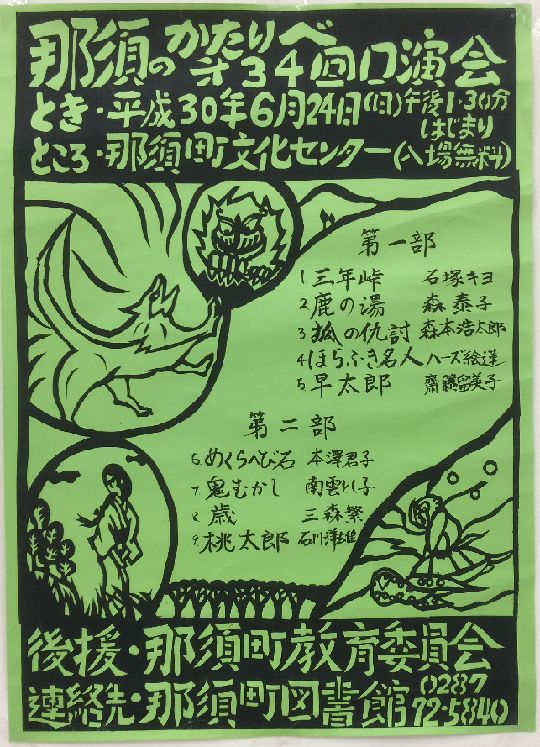 那須のかたりべ
第34回口演会
とき・平成30年6月24日(日)午後1・30分
はじまり
ところ・那須町文化センター(入場無料)
第一部
1. 三年峠 石塚キヨ
2 鹿の湯 森 泰子
3 狐の仇討 森本浩太郎
4 ほらふき名人 ハーズ絵蓮
5. 早太郎 齋藤留美子
第二部
6. めくらへび石 本澤君子
7. 鬼むかし 南雲とし子
8. 歳 三森繁
9. 桃太郎
後援・那須町教育委員会
連絡先・那須町図書館 0287
72-5840